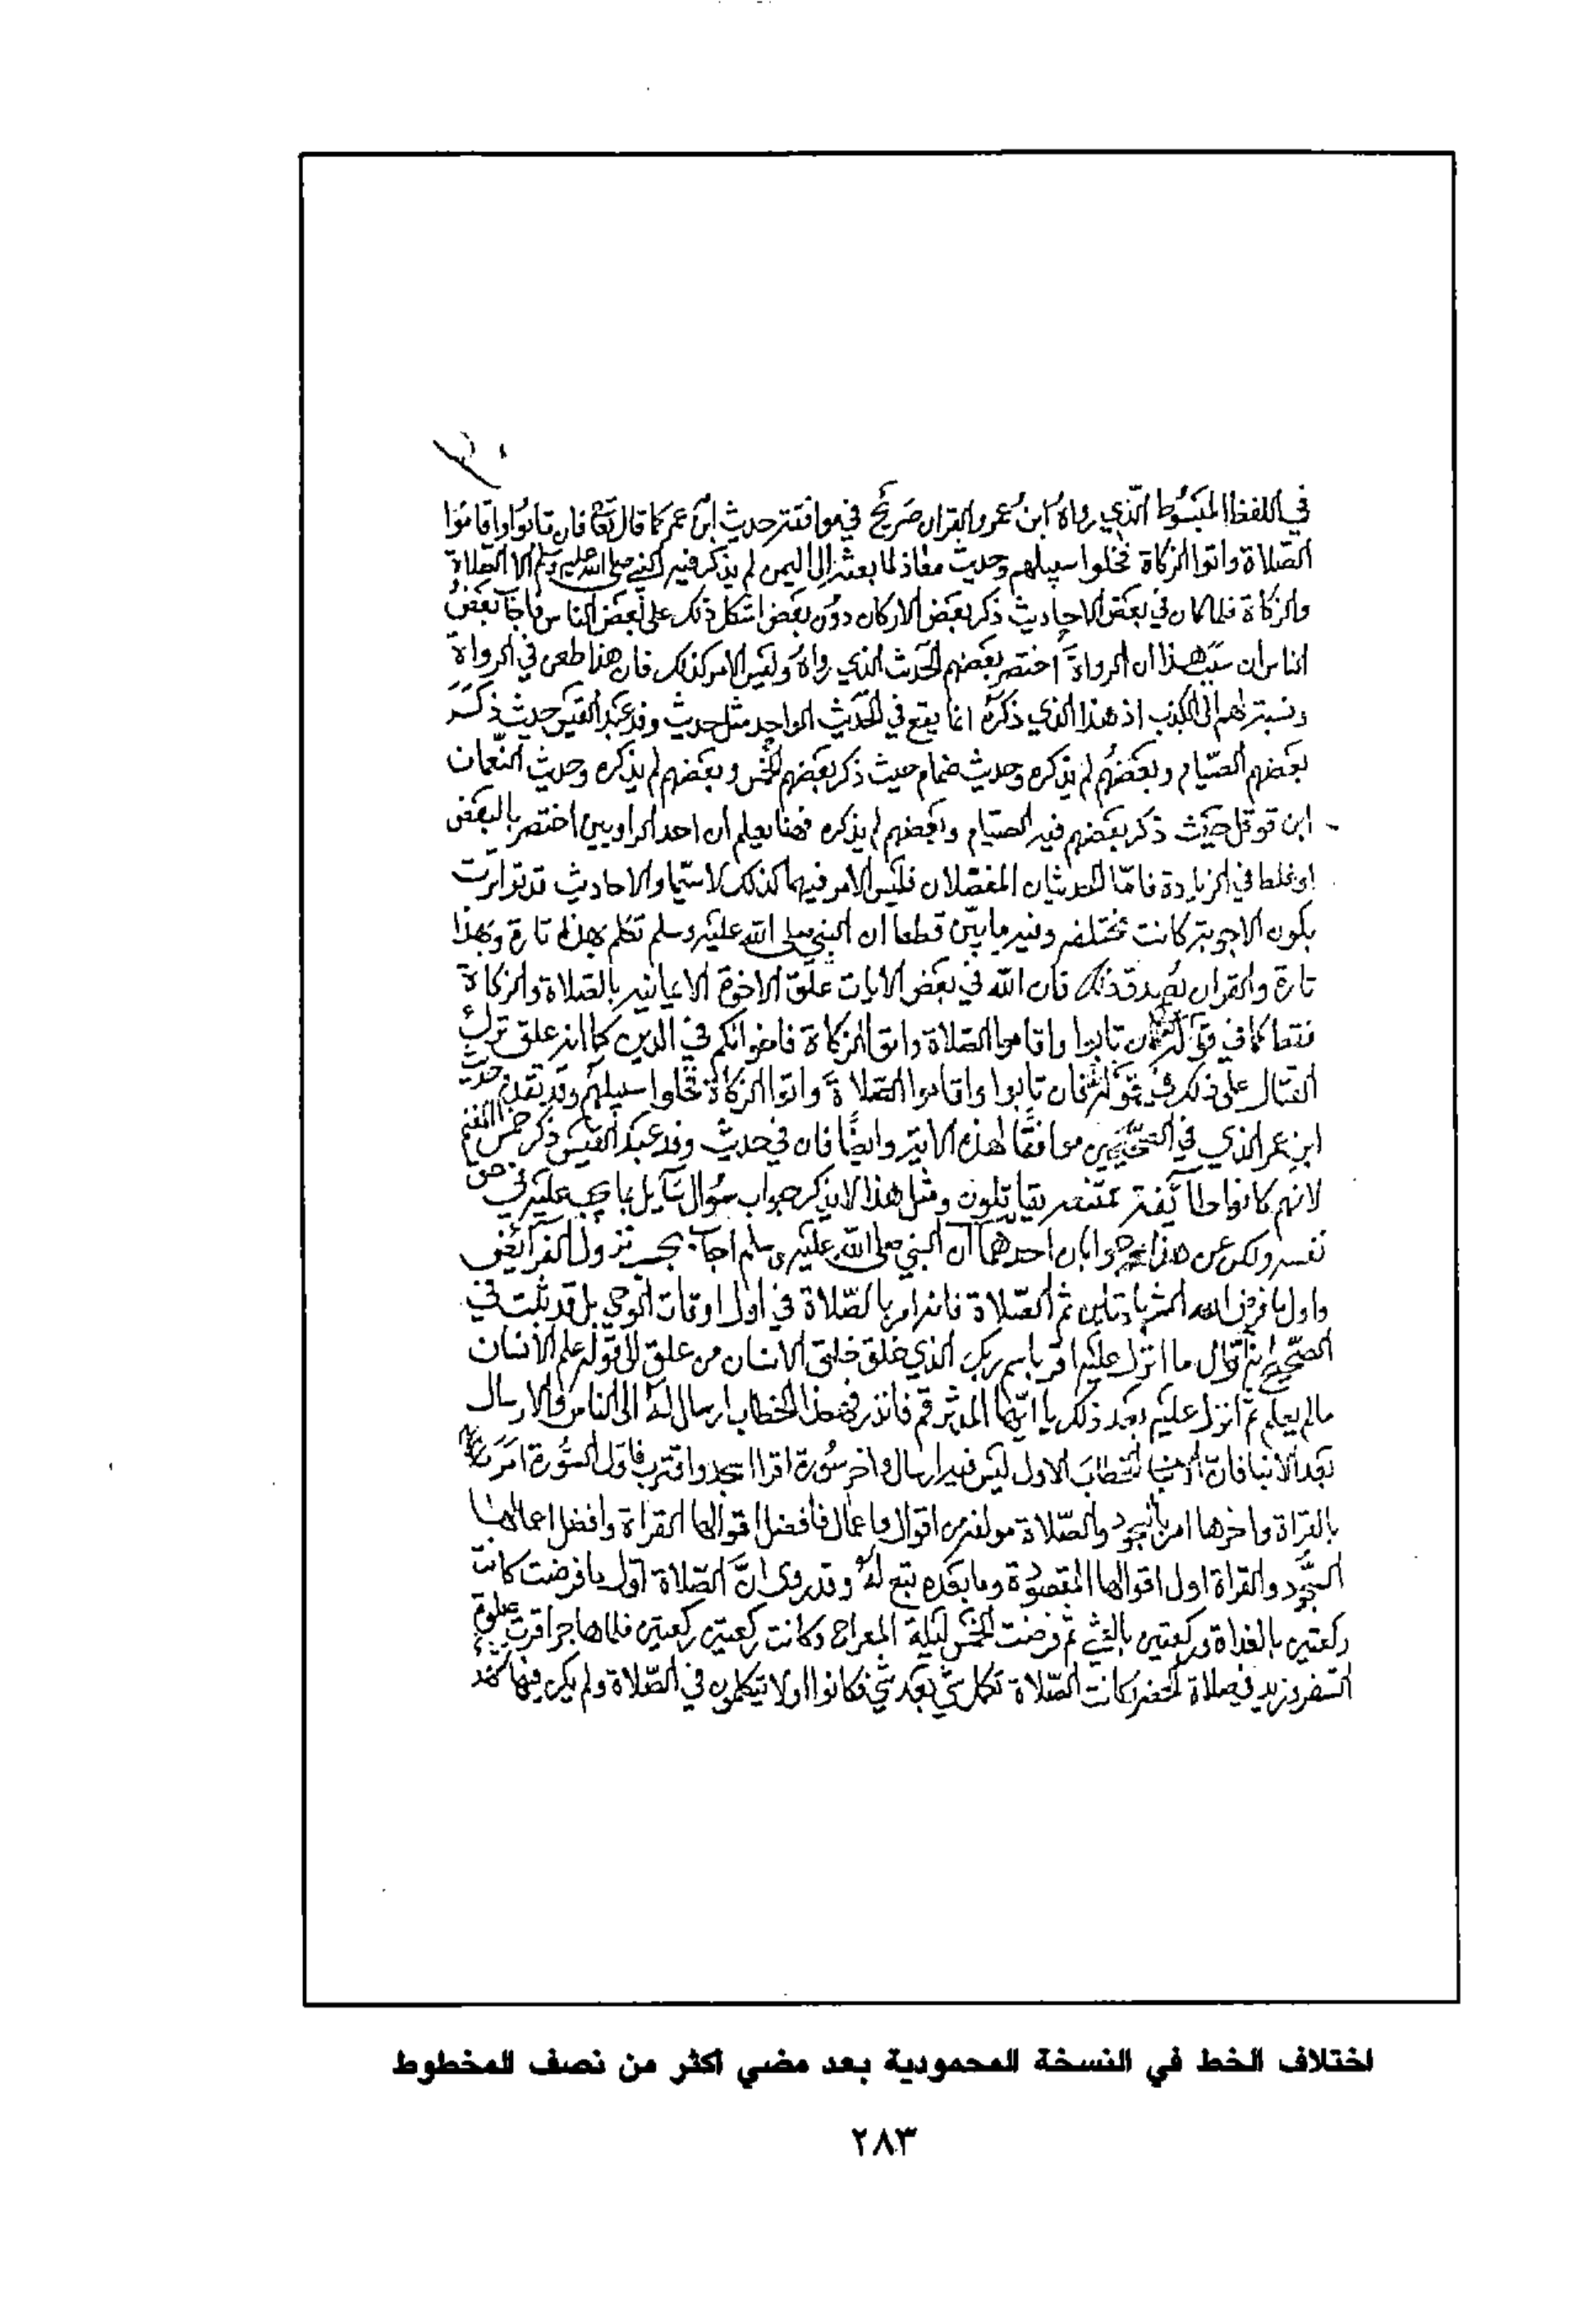 في اللفظ المبسوط الذي رواه ابن عمر والقران صريح في موافقته حديث ابن عمر كما قال تعالى فان تابوا واقاموا
الصلاة واتوا الزكاة فخلوا سبيلهم وحديث معاذ لما بعثه الى اليمن لم يذكر فيه النبي صلى الله عليه وسلم الا الصلاة
والزكاة فلما كان في بعض الاحاديث ذكر بعض الاركان دون بعض اشكل ذلك على بعض الناس فاجاب بعض
الناس ان سبب هذا ان الرواة اختصر بعضهم الحديث الذي رواه وليس الامر كذلك فان هذا طعن في الرواة
ونسبة لهم الى الكذب اذ هذا الذي ذكره انما يقع في الحديث الواحد مثل حديث وفد عبد القيس حيث ذكر
بعضهم الصيام وبعضهم لم يذكره وحديث ضمام حيث ذكر بعضهم الخمس وبعضهم لم يذكره وحديث النعمان
ابن قوقل حيث ذكر بعضهم فيه الصيام وبعضهم لم يذكره فهنا يعلم ان احد الراويين اختصر بالبعض
او غلط في الزيادة فاما الحديثان المفصلان فليس الامر فيهما كذلك لا سيما والاحاديث قد تواترت
بكون الاجوبة كانت مختلفه وفيه ما بين قطعا ان النبي صلى الله عليه وسلم تكلم بهذا تارة وبهذا
تارة والقران يصدق ذلك فان الله في بعض الايات علق الاخوة الايمانيه بالصلاة والزكاة
فقط كما في قوله فان تابوا واقاموا الصلاة واتوا الزكاة فاخوانكم في الدين كما انه علق ترك
القتال على ذلك في قوله فان تابوا واقاموا الصلاة واتوا الزكاة فخلوا سبيلهم وقد تقدم حديث
ابن عمر الذي في الصحيحين موافقا لهذه الاية وايضا فان في حديث وفد عبد القيس ذكر خمس المغنم
لانهم كانوا طائفة ممتنعه يقاتلون ومثل هذا لا يذكر جواب سؤال سايل بما يجب عليه في حق
نفسه ولكن عن هذا جوابان احدهما ان النبي صلى الله عليه وسلم اجاب بحسب نزول الفرائض
واول ما فرض الله الشهادتان ثم الصلاة فانه امر بالصلاة في اول اوقات الوحي بل قد ثبت في
الصحيح انه اول ما انزل عليه اقرا باسم ربك الذي خلق خلق الانسان من علق الى قوله علم الانسان
مالم يعلم ثم انزل عليه بعد ذلك يا ايها المدثر قم فانذر فهذا الخطاب ارسال له الى الناس والارسال
بعد الانبا فان الانبا الخطاب الاول ليس فيه ارسال واخر سورة اقرا اسجد واقترب فاول السورة امر
بالقراة واخرها امر بالسجود والصلاة مولفة من اقوال واعمال فافضل اقوالها القراة وافضل اعمالها
السجود والقراة اول اقوالها المقصودة وما بعده تبع له وقد روى ان الصلاة اول ما فرضت كانت
ركعتين بالغداة وركعتين بالعشي ثم فرضت الخمس ليلة المعراج وكانت ركعتين ركعتين فلما هاجر اقرت صلوة
السفر وزيد في صلاة الحضر كانت الصلاة تكمل شي بعد شي فكانوا اولا يتكلمون في الصلاة ولم يكن فيها تشهد
اختلاف الخط في النسخة المحمودية بعد مضي اكثر من نصف المخطوط
٢٨٣